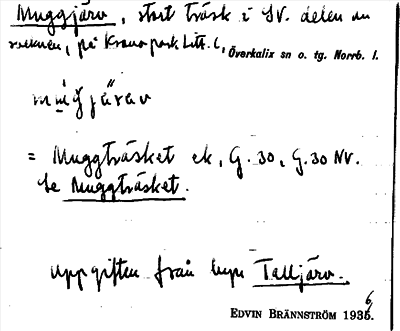 Muggjärv, stort träsk i SV. delen av
socknen, på Kronopark Litt. C, Överkalix sn o. tg. Norrb. l.
= Muggträsket ek, G. 30, G. 30 NV.
Se Muggträsket.
Uppgiften från byn Talljärv.
EDVIN BRÄNNSTRÖM 1936